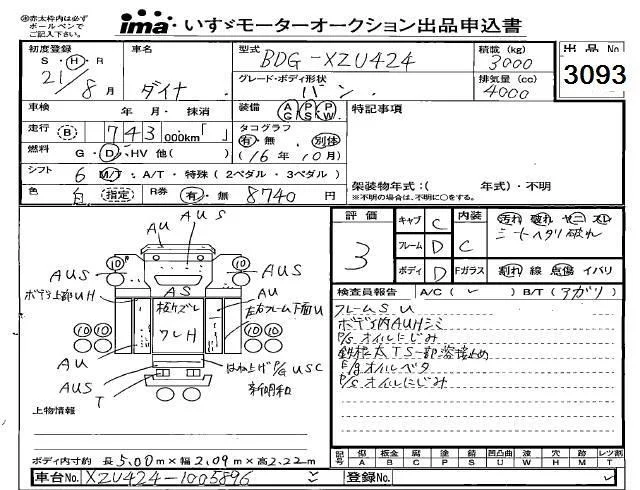 ※赤太枠内は必ず
ボールペンで
ご記入下さい。
ima いすゞモーターオークション出品申込書
初度登録 車名 型式 BDG-XZU424 積載(kg) 3000 出品No
S・H・R 21/8月 ダイナ グレード・ボディ形状 バン 排気量(cc) 4000 3093
車検 年 月・抹消 装備 AC PS PW 特記事項
走行 B 743 000km「 」 タコグラフ 有・無 別体
燃料 G・D・HV 他( ) (16年10月)
シフト 6 M/T・A/T・特殊(2ペダル・3ペダル)
架装物年式:( 年式)・不明
※不明の場合は、不明に○をする。
色 白 指定 R券 有・無 8740円
評価 3 キャブ C 内装 C 汚れ 破れ ヤニ スレ
シートヘタリ破れ
フレーム D
ボディ D Fガラス 割れ 線 点傷 イバリ
検査員報告 A/C(✓) B/T(アガリ)
フレームS U
ボデー内AUHシミ
P/Sオイルにじみ
TS一部溶接止め
E/gオイルベタ
P/Sオイルにじみ
10 10
AU AUS
AUS AUS
ボデー上部UH AS AU
板ズレ 左右フレーム下面U
フレH
10 10 10 10
AU はね上げP/G USC
AUS 新明和
T
上物情報
ボディ内寸約 長5.00m×幅2.09m×高2.22m
記号 傷 A 板金 B 腐 C 塗 P 錆 S 凹凸曲 U 波 W 穴 H 跡 M レツ割 T
車台No. XZU424-1005896 登録No.